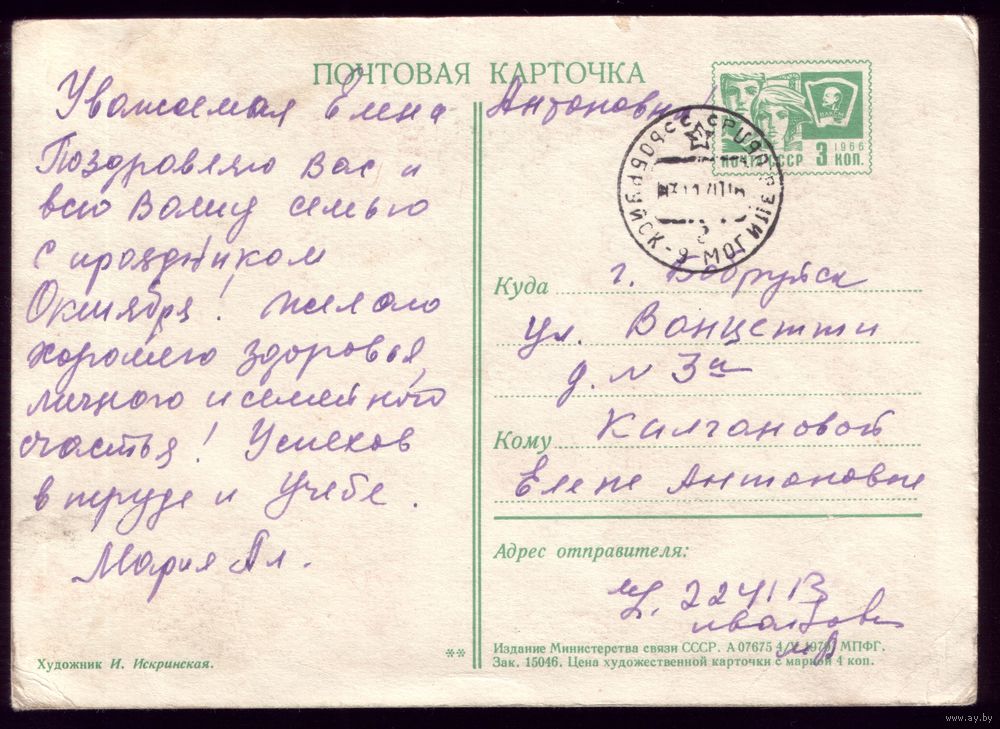 ПОЧТОВАЯ КАРТОЧКА
Уважаемая Елена Антоновна!
Поздравляю Вас и
всю Вашу семью
с праздником
Октября! Желаю
хорошего здоровья,
личного и семейного
счастья! Успехов
в труде и учебе.
Мария Пл.
Художник И. Искринская.
**
ВЛКСМ
1966
ПОЧТА СССР 3 КОП.
БОБРУЙСК-9 МОГИЛЕВ
Куда г. Бобруйск
ул. Ванцетти
д. № 3а
Кому Калгановой
Елене Антоновне
Адрес отправителя:
Издание Министерства связи СССР. А 07675 1970. МПФГ.
Зак. 15046. Цена художественной карточки с маркой 4 коп.
www.ay.by